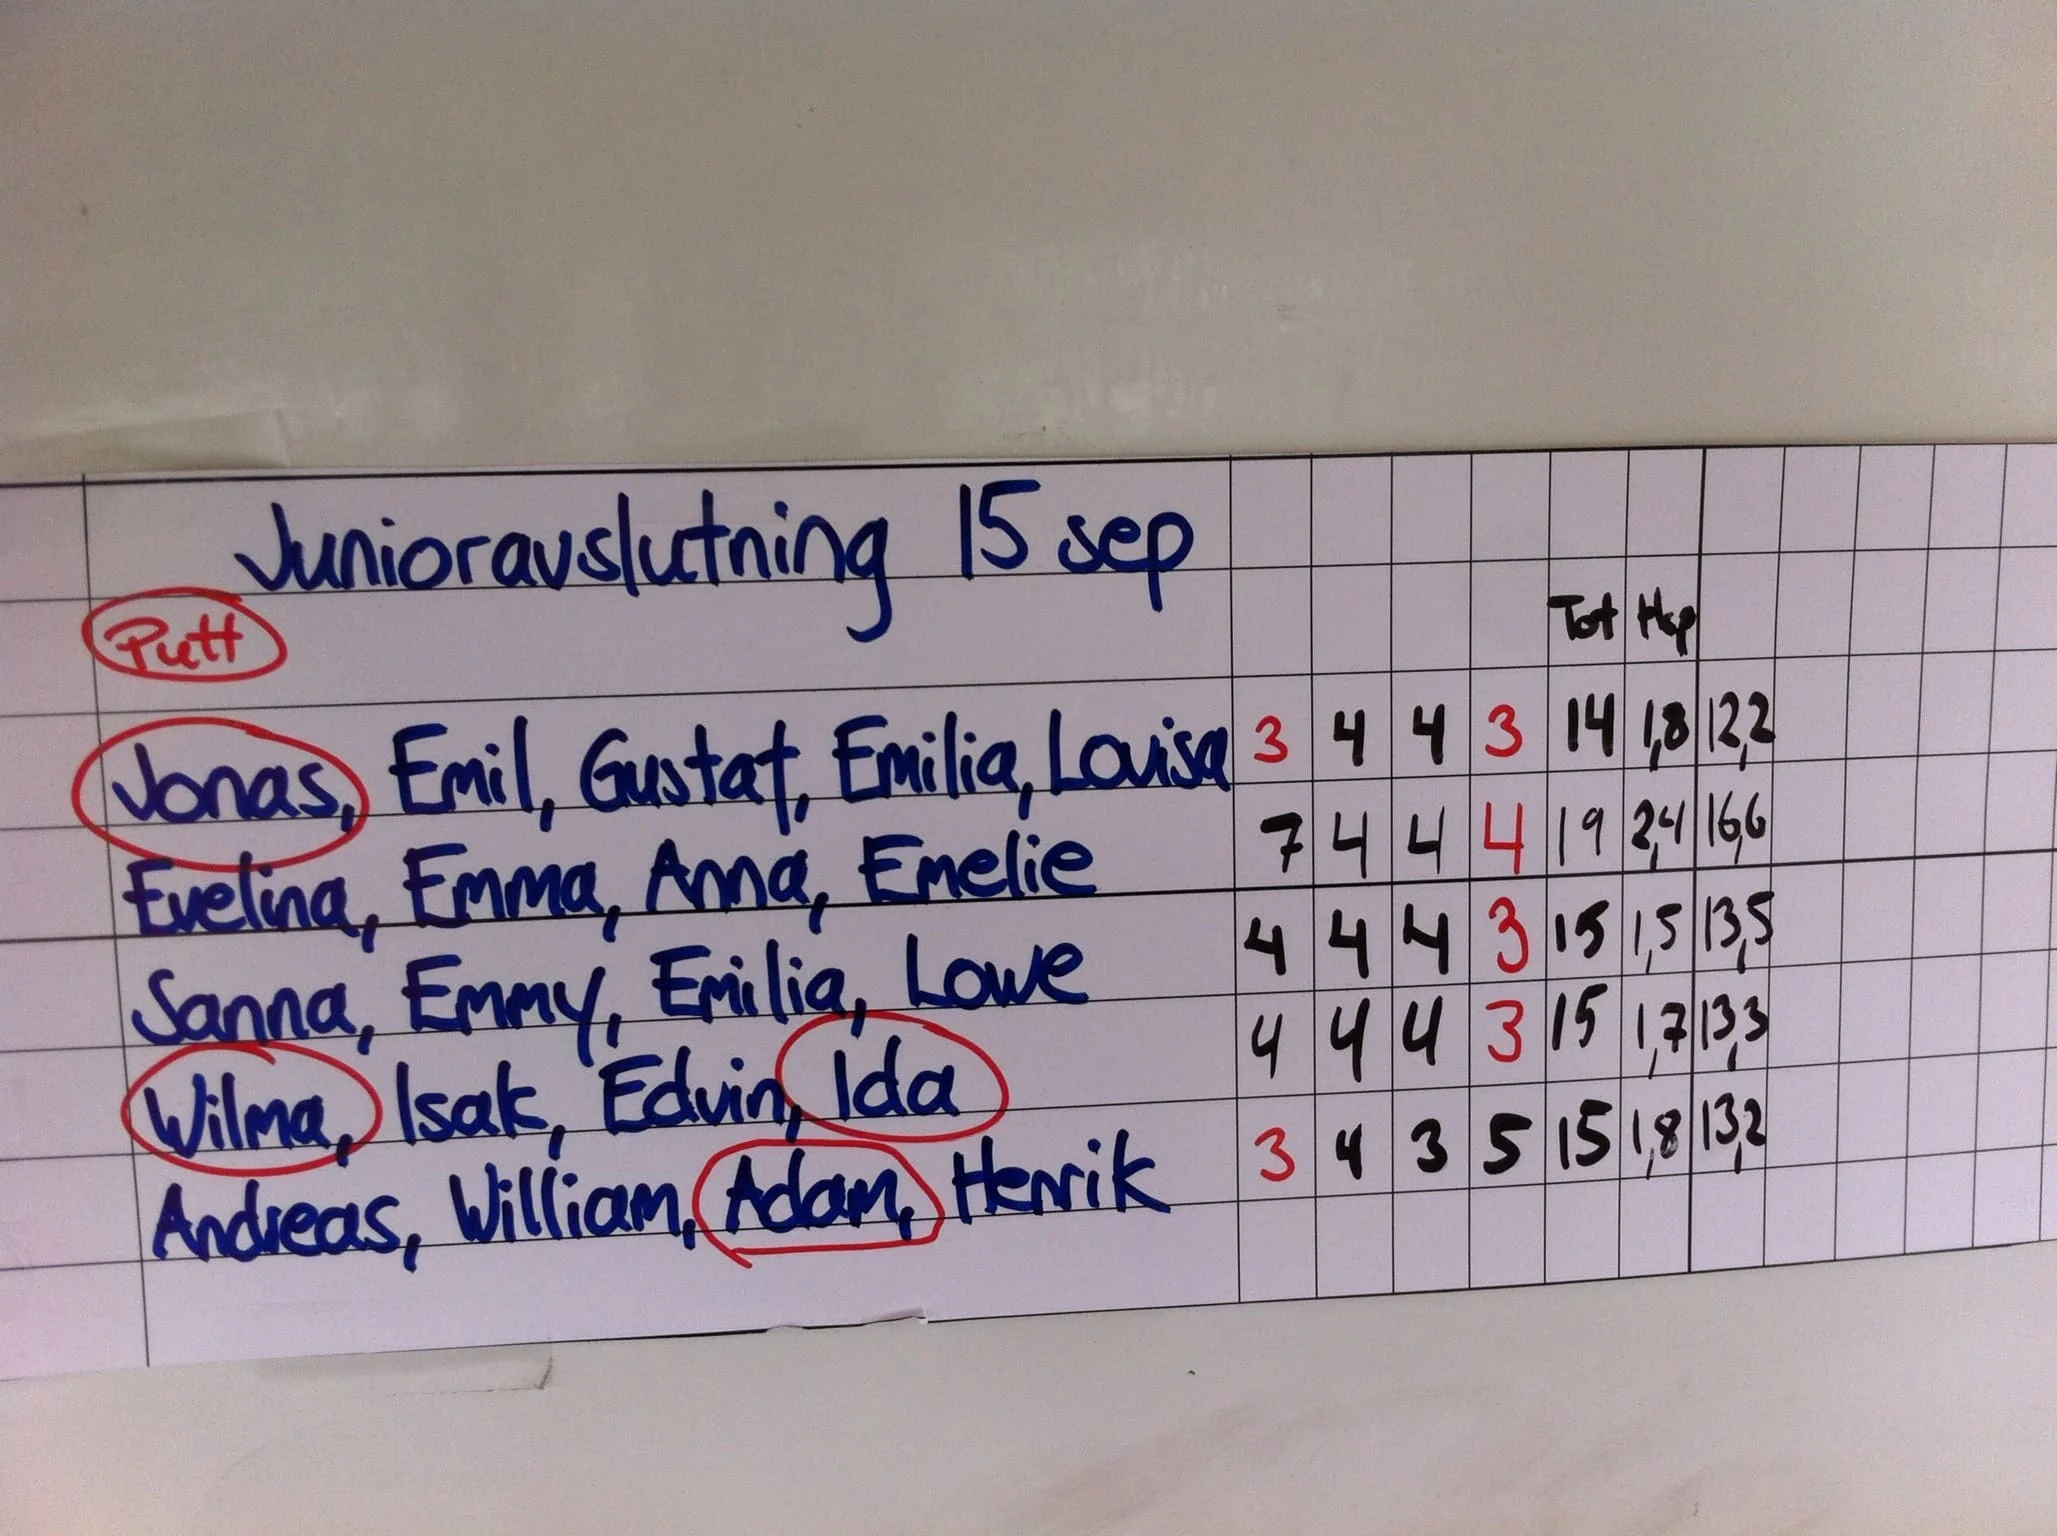 Junioravslutning 15 sep
Putt Tot Hcp
Jonas, Emil, Gustaf, Emilia, Louisa 3 4 4 3 14 1,8 12,2
Evelina, Emma, Anna, Emelie 7 4 4 4 19 2,4 16,6
Sanna, Emmy, Emilia, Lowe 4 4 4 3 15 1,5 13,5
Wilma, Isak, Edvin, Ida 4 4 4 3 15 1,7 13,3
Andreas, William, Adam, Henrik 3 4 3 5 15 1,8 13,2